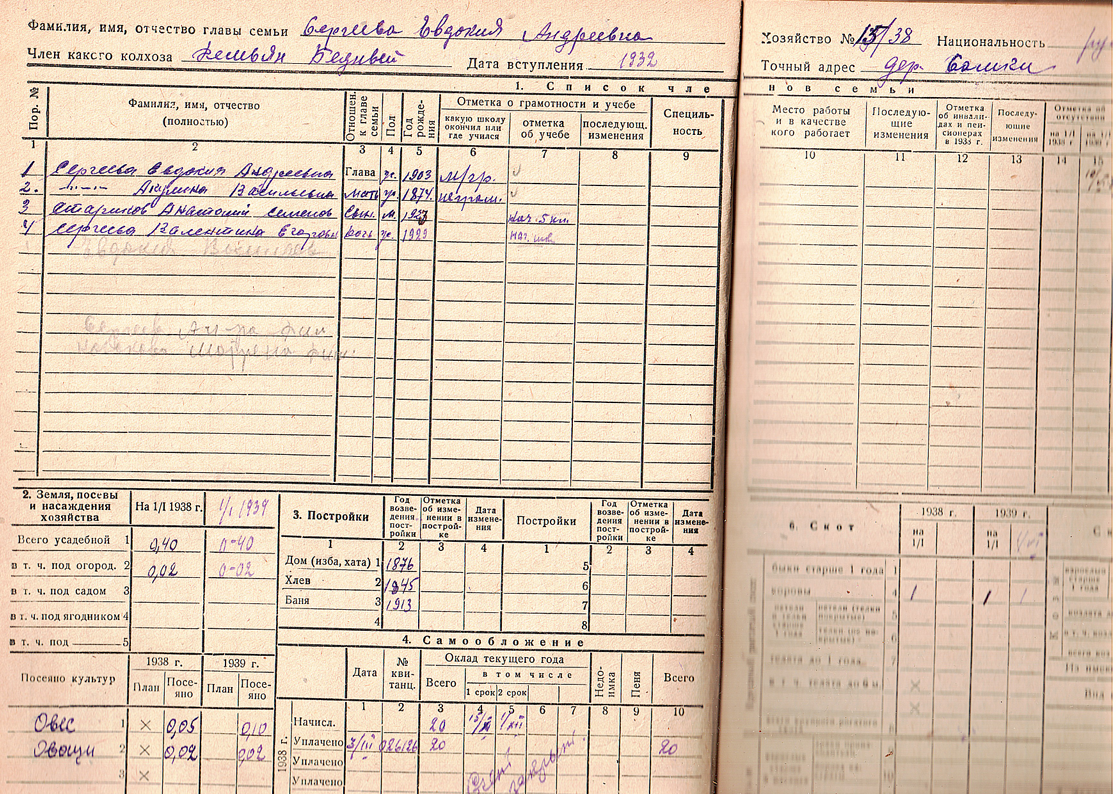 Фамилия, имя, отчество главы семьи Сергеева Евдокия Андреевна
Член какого колхоза Демьян Бедный Дата вступления 1932
1. Список чле
Пор. № Фамилия, имя, отчество (полностью) Отношен. к главе семьи Пол Год рождения Отметка о грамотности и учебе Специльность
какую школу окончил или где учился отметка об учебе последующ. изменения
1 2 3 4 5 6 7 8 9
1 Сергеева Евдокия Андреевна Глава ж. 1903 м/гр.
2. Акулина Васильевна мать 1874 неграм.
3 Стариков Анатолий Семенов сын м. нач. 5 кл.
4 Сергеева Валентина Егоровн дочь ж. 1929 нач. шк.
2. Земля, посевы и насаждения хозяйства На 1/I 1938 г. 1/I 1939
Всего усадебной 1 0,40 0-40
в т. ч. под огород. 2 0,02 0-02
в т. ч. под садом 3
в т. ч. под ягодником 4
в т. ч. под 5
Посеяно культур 1938 г. 1939 г.
План Посеяно План Посеяно
Овес 1 × 0,05 0,10
Овощи 2 × 0,02 0,02
3 ×
3. Постройки Год возведения постройки Отметка об изменении в постройке Дата изменения Постройки Год возведения постройки Отметка об изменении в постройке Дата изменения
1 2 3 4 1 2 3 4
Дом (изба, хата) 1 1876 5
Хлев 2 1945 6
Баня 3 1913 7
4 8
4. Самообложение
Дата № квитанц. Оклад текущего года Недоимка Пеня Всего
Всего в том числе
1 срок 2 срок
1 2 3 4 5 6 7 8 9 10
1938 г.
Начисл. 20 15/XI 1/XII
Уплачено 3/III 026126 20 20
Уплачено
Уплачено
Хозяйство № 13/38 Национальность
Точный адрес дер. Сомки
нов семьи
Место работы и в качестве кого работает Последующие изменения Отметка об инвалидах и пенсионерах в 1938 г. Последующие изменения Отметка об отсутствии
на 1/I 1938 г. на 1/I 1939 г.
10 11 12 13 14 15
6. Скот 1938 г. 1939 г.
на 1/I на 1/I
быки старше 1 года 1
коровы 4 1 1 1
телята до 1 года 7